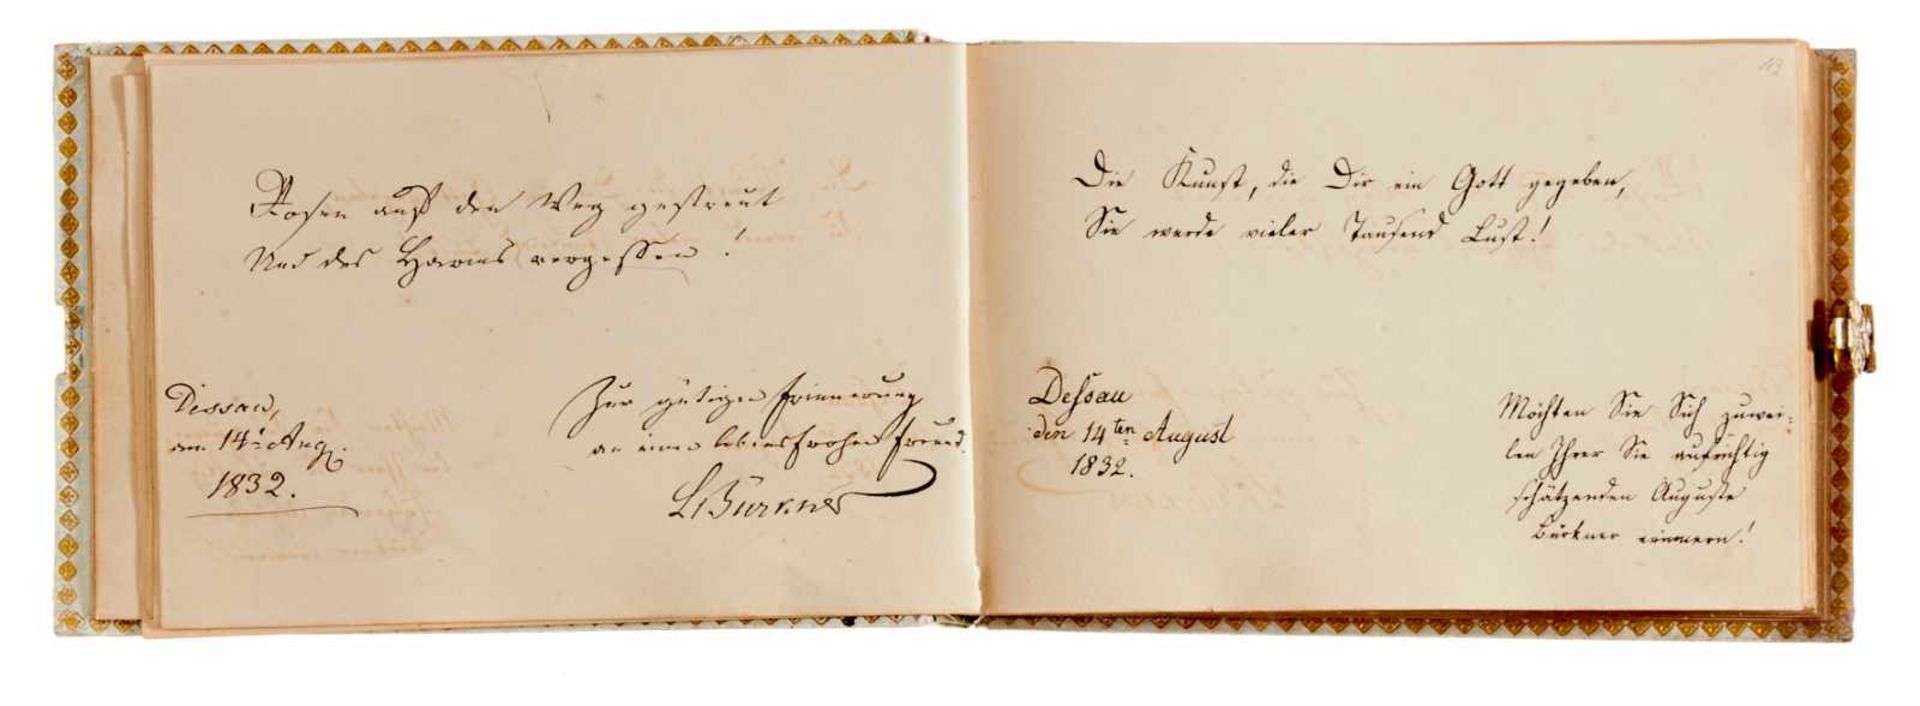 Rosen auf den Weg gestreut
Und des Harmes vergessen!
Dessau,
am 14t. Aug.
1832.
Zur gütigen Erinnerung
an einen lebensfrohen Freund.
L Bürkner
113
Die Kunst, die Dir ein Gott gegeben,
Sie werde vieler Tausend Lust!
Dessau
den 14ten August
1832.
Möchten Sie Sich zuwei-
len Ihrer Sie aufrichtig
schätzenden Auguste
Bürkner erinnern!